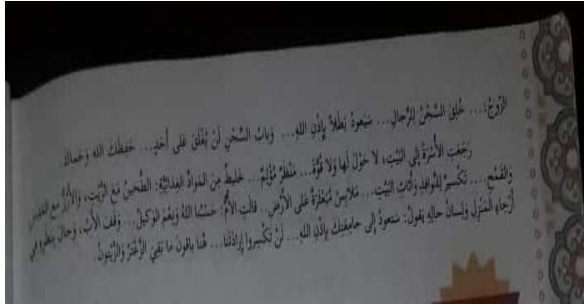 الزَّوْجُ:... خُلِقَ السِّجْنُ لِلرِّجالِ... سَيَعودُ بَطَلًا بِإِذْنِ اللهِ... وَبابُ السِّجْنِ لَنْ يُغْلَقَ عَلى أَحَدٍ... حَفِظَكَ اللهُ وَحَماكَ.
رَجَعَتِ الأُسْرَةُ إِلى البَيْتِ، لا حَوْلَ لَها وَلا قُوَّةَ... مَنْظَرٌ مُؤْلِمٌ... خَليطٌ مِنَ المَوادِّ الغِذائِيَّةِ: الطَّحينُ مَعَ الزَّيْتِ، وَالأَرُزُّ مَع العَدَسِ
وَالقَمْحِ... تَكْسيرٌ لِلنَّوافِذِ وَأَثاثِ البَيْتِ... مَلابِسُ مُبَعْثَرَةٌ عَلى الأَرْضِ.. قالَتِ الأُمُّ: حَسْبُنا اللهُ وَنِعْمَ الوَكيلُ... وَقَفَ الأَبُ، وَجالَ بِنَظَرِهِ في
أَرْجاءِ المَنْزِلِ وَلِسانُ حالِهِ يَقولُ: سَتَعودُ إِلى جامِعَتِكَ بِإِذْنِ اللهِ... لَنْ تَكْسِروا إِرادَتَنا... هُنا باقونَ ما بَقِيَ الزَّعْتَرُ وَالزَّيْتونُ.